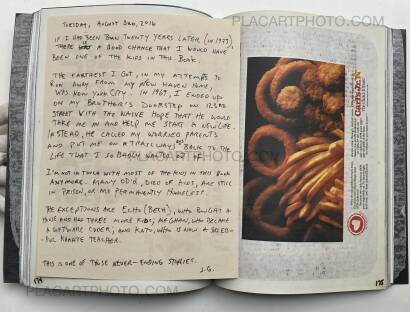 WWW.PLACARTPHOTO.COM
TUESDAY, AUGUST 3RD, 2016
IF I HAD BEEN BORN TWENTY YEARS LATER (IN 1977),
THERE A GOOD CHANCE THAT I WOULD HAVE
BEEN ONE OF THE KIDS IN THIS BOOK.
THE FARTHEST I GOT, IN MY ATTEMPTS TO
RUN AWAY FROM MY NEW HAVEN HOME,
WAS NEW YORK CITY. IN 1967, I ENDED UP
ON MY BROTHER'S DOORSTEP ON 123RD
STREET WITH THE NAIVE HOPE THAT HE WOULD
TAKE ME IN AND HELP ME START A NEW LIFE.
INSTEAD, HE CALLED MY WORRIED PARENTS
AND PUT ME ON A TRAILWAYS BUS BACK TO THE
LIFE THAT I SO BADLY WANTED OUT OF.
I'M NOT IN TOUCH WITH MOST OF THE KIDS IN THIS BOOK
ANYMORE. MANY OD'D, DIED OF AIDS, ARE STILL
IN PRISON, OR ARE PERMANENTLY HOMELESS.
THE EXCEPTIONS ARE ECHO (BETH), WHO BOUGHT A
HOUSE AND HAD THREE MORE KIDS, MEGHAN, WHO BECAME
A SOFTWARE CODER, AND KATO, WHO IS NOW A SUCCESS-
FUL KARATE TEACHER.
THIS IS ONE OF THOSE NEVER-ENDING STORIES.
J.G.
174
Carl's Jr.
175
WWW.PLACARTPHOTO.COM